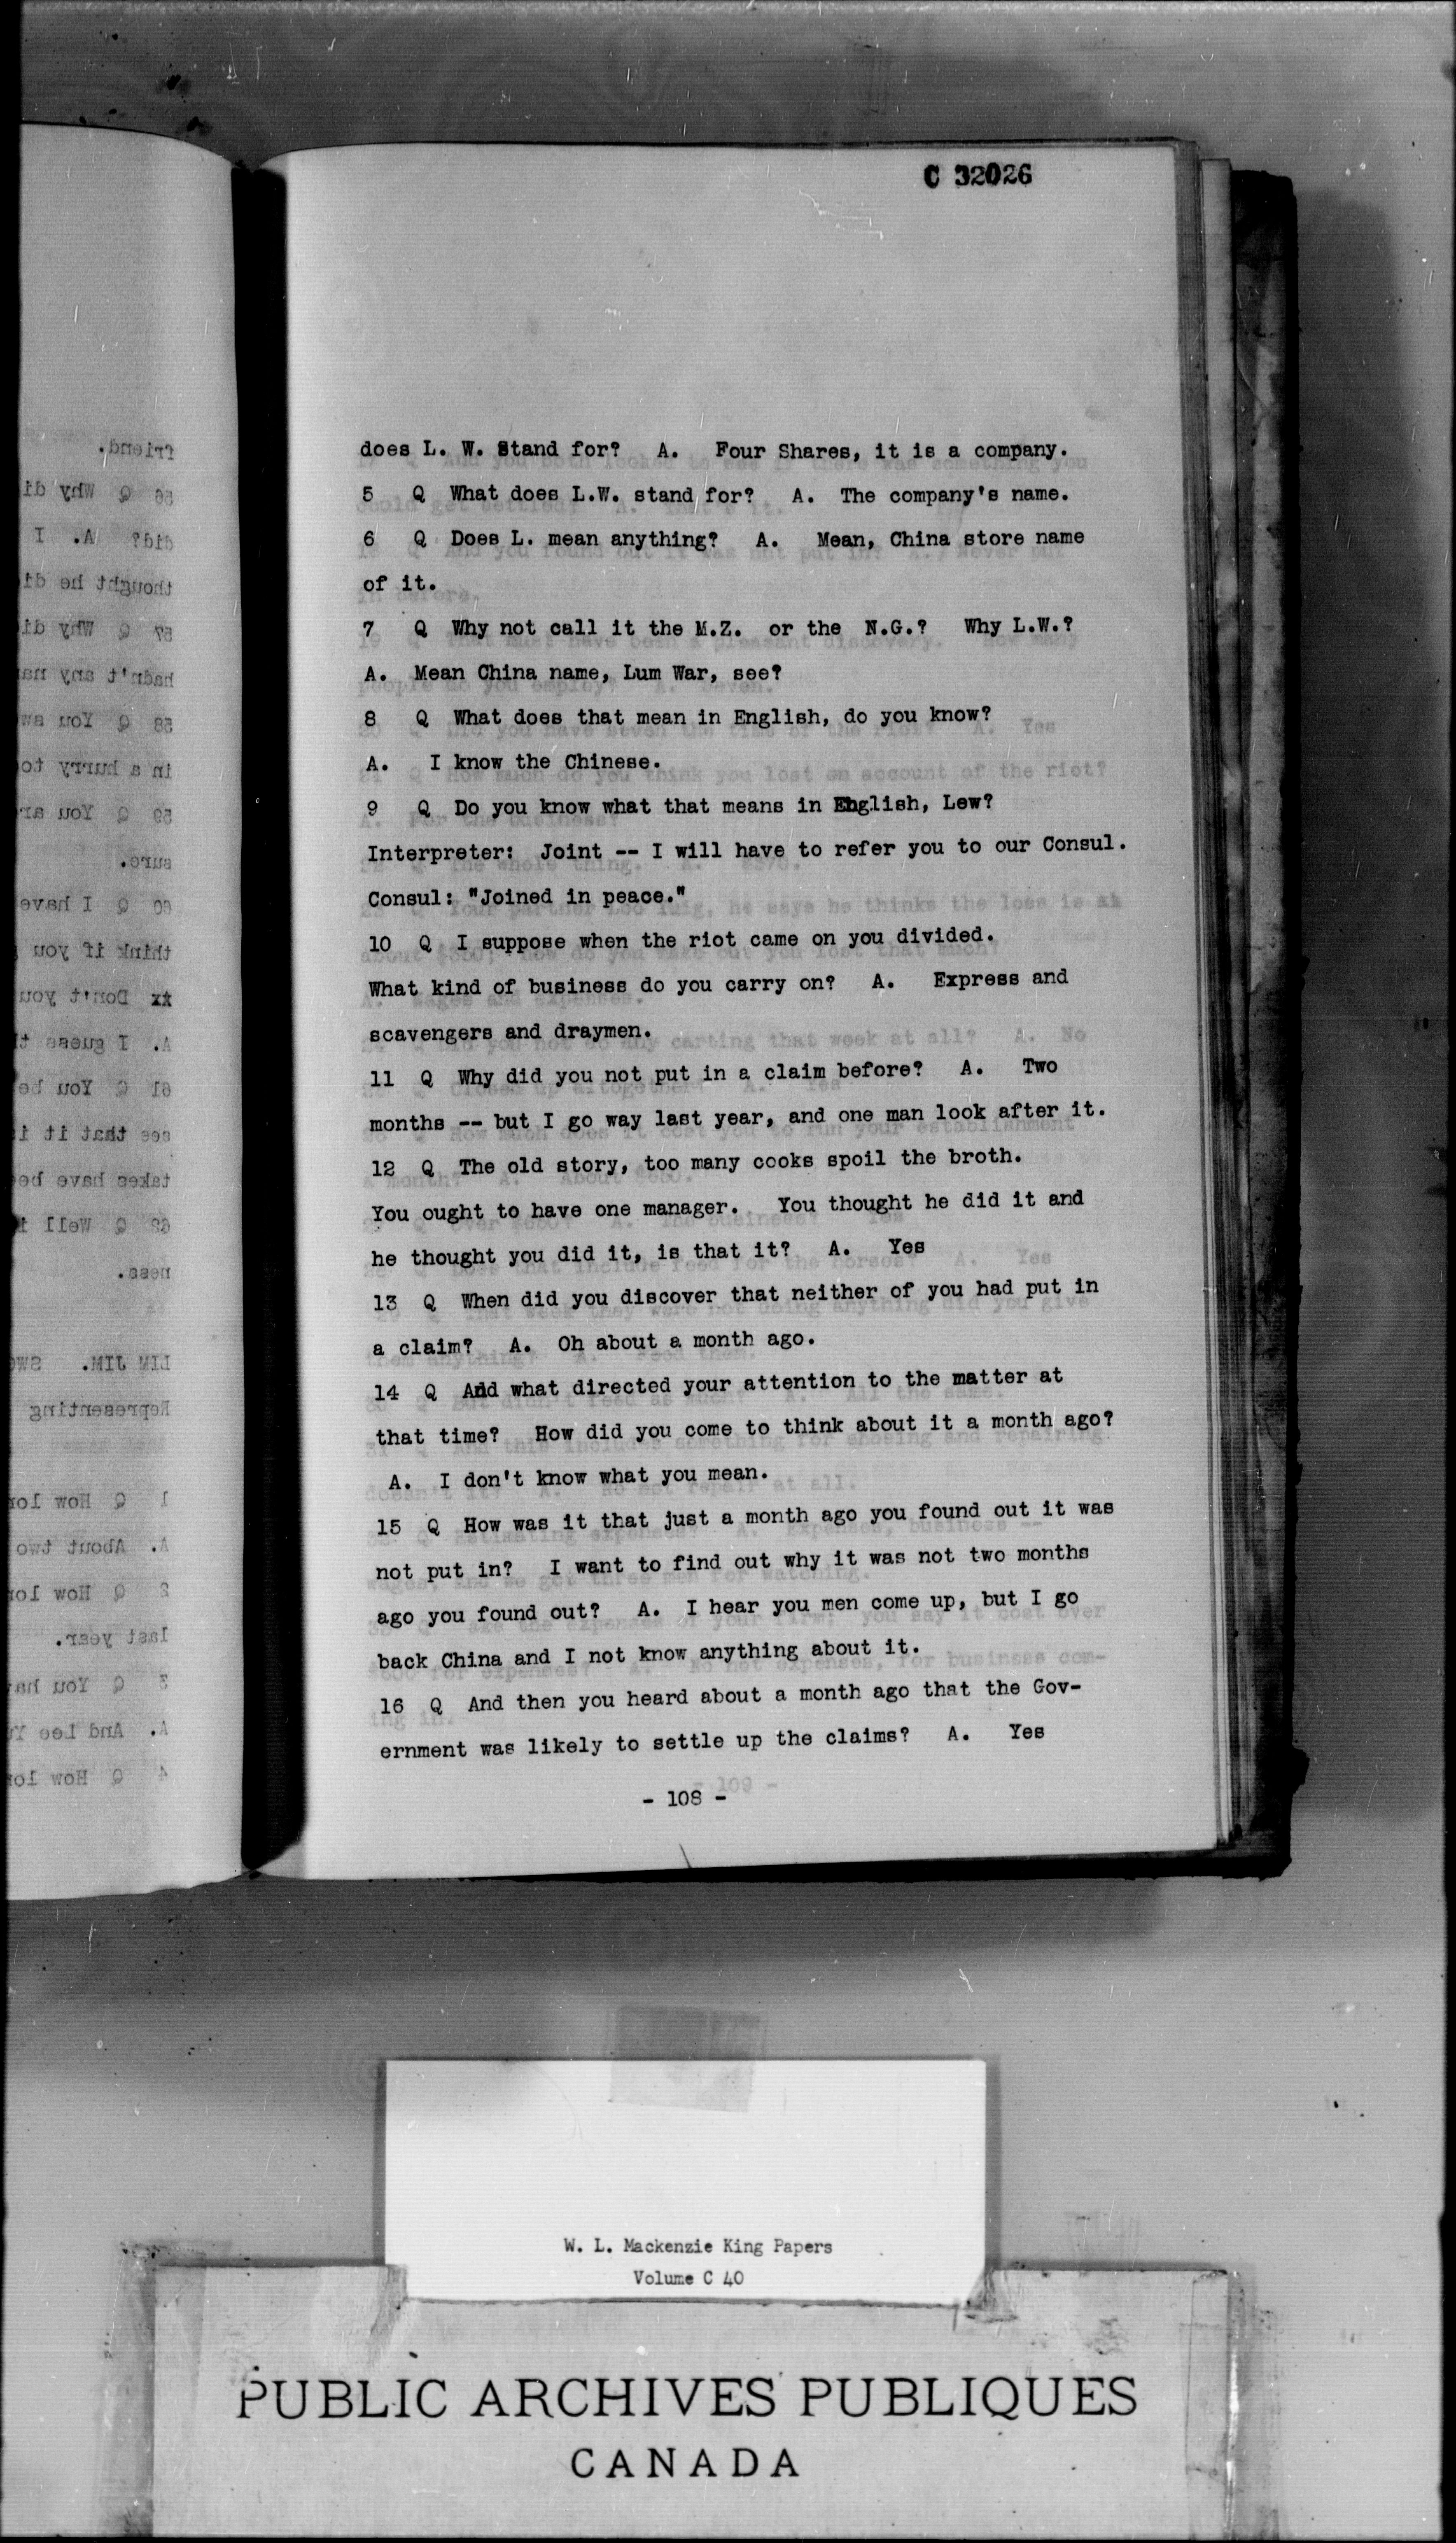 C 32026
does L. W. Stand for?   A.   Four Shares, it is a company.
5   Q   What does L.W. stand for?   A.   The company's name.
6   Q   Does L. mean anything?   A.   Mean, China store name
of it.
7   Q   Why not call it the M.Z.  or the  N.G.?   Why L.W.?
A.   Mean China name, Lum War, see?
8   Q   What does that mean in English, do you know?
A.   I know the Chinese.
9   Q   Do you know what that means in English, Lew?
Interpreter:  Joint -- I will have to refer you to our Consul.
Consul: "Joined in peace."
10   Q   I suppose when the riot came on you divided.
What kind of business do you carry on?   A.   Express and
scavengers and draymen.
11   Q   Why did you not put in a claim before?   A.   Two
months -- but I go way last year, and one man look after it.
12   Q   The old story, too many cooks spoil the broth.
You ought to have one manager.   You thought he did it and
he thought you did it, is that it?   A.   Yes
13   Q   When did you discover that neither of you had put in
a claim?   A.   Oh about a month ago.
14   Q   And what directed your attention to the matter at
that time?   How did you come to think about it a month ago?
A.   I don't know what you mean.
15   Q   How was it that just a month ago you found out it was
not put in?   I want to find out why it was not two months
ago you found out?   A.   I hear you men come up, but I go
back China and I not know anything about it.
16   Q   And then you heard about a month ago that the Gov-
ernment was likely to settle up the claims?   A.   Yes
- 108 -
W. L. Mackenzie King Papers
Volume C 40
PUBLIC ARCHIVES PUBLIQUES
CANADA